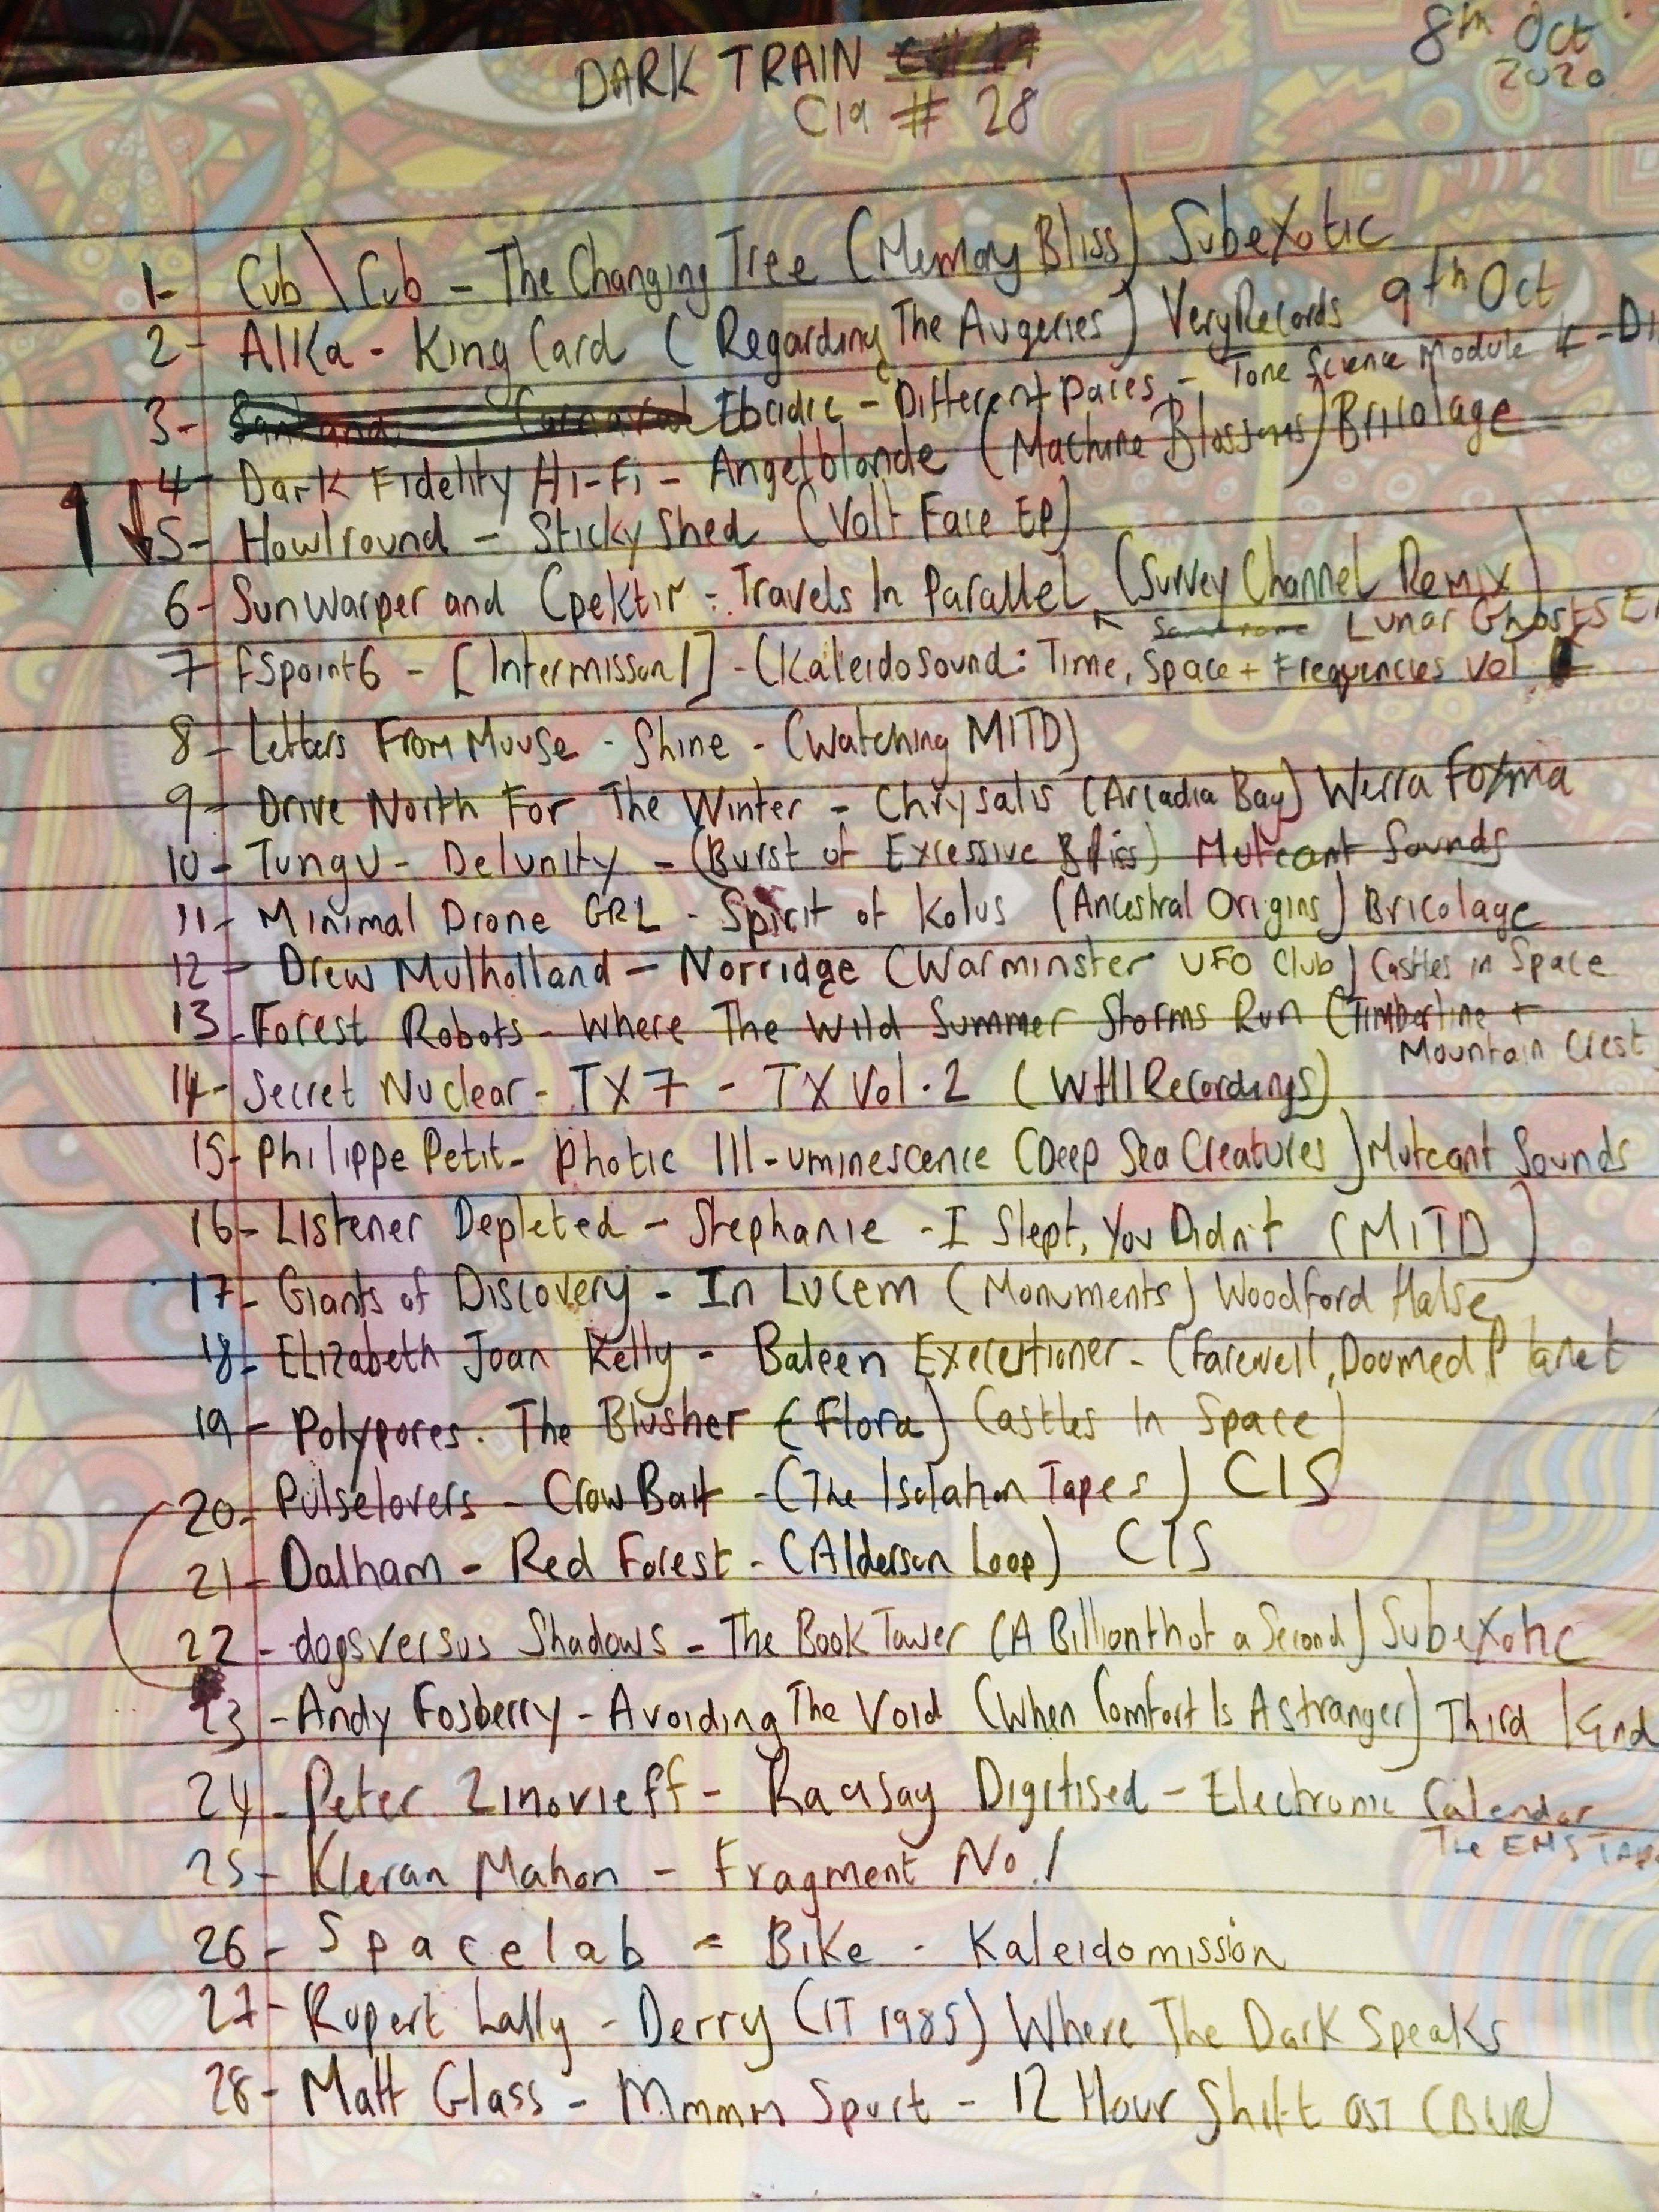 DARK TRAIN
C19 # 28
8th Oct
2020
1- Cub \ Cub - The Changing Tree (Memory Bliss) Subexotic
2- Alka - King Card (Regarding The Augeries) VeryRecords 9th Oct
3- Ebridic - Different paces - Tone Science Module 4 - Di
4- Dark Fidelity Hi-Fi - Angelblonde (Machine Blossoms) Bricolage
5- Howlround - Sticky Shed (Volt Face EP)
6- Sunwarper and Cpektir - Travels In Parallel (Survey Channel Remix)
Lunar Ghosts E
7 FSpoint6 - [Intermisson/] - (Kaleidosound: Time, Space + Frequencies Vol
8- Letters From Mouse - Shine - (Watching MITD)
9- Drive North For The Winter - Chrysalis (Arcadia Bay) Werra Foxma
10- Tungu - Delunity - (Burst of Excessive Bliss) Muteant Sounds
11- Minimal Drone GRL - Spirit of Kolus (Ancestral Origins) Bricolage
12- Drew Mulholland - Norridge (Warminster UFO Club) Castles in Space
13- Forest Robots - Where The Wild Summer Storms Run (Timberline +
Mountain Crest
14- Secret Nuclear - TX7 - TX Vol.2 (WHI Recordings)
15- Philippe Petit - Photic Ill-uminescence (Deep Sea Creatures) Muteant Sounds
16- Listener Depleted - Stephanie - I Slept, You Didn't (MITD)
17- Giants of Discovery - In Lucem (Monuments) Woodford Halse
18- Elizabeth Joan Kelly - Baleen Executioner - (Farewell, Doomed Planet
19- Polypores. The Blusher (Flora) Castles In Space)
20- Pulselovers - Crow Bait - (The Isolation Tapes) CIS
21- Dalham - Red Forest - (Alderson Loop) CIS
22- dogsversus Shadows - The Book Tower (A Billionth of a Second) Subexotic
23- Andy Fosberry - Avoiding The Void (When Comfort Is A Stranger) Third Kind
24- Peter Zinovieff - Raasay Digitised - Electronic Calendar
The EMS TAPE
25- Kieran Mahon - Fragment No. 1
26- Spacelab = Bike - Kaleidomission
27- Rupert Lally - Derry (IT 1985) Where The Dark Speaks
28- Matt Glass - Mmmm Spurt - 12 Hour Shift OST (BWR)